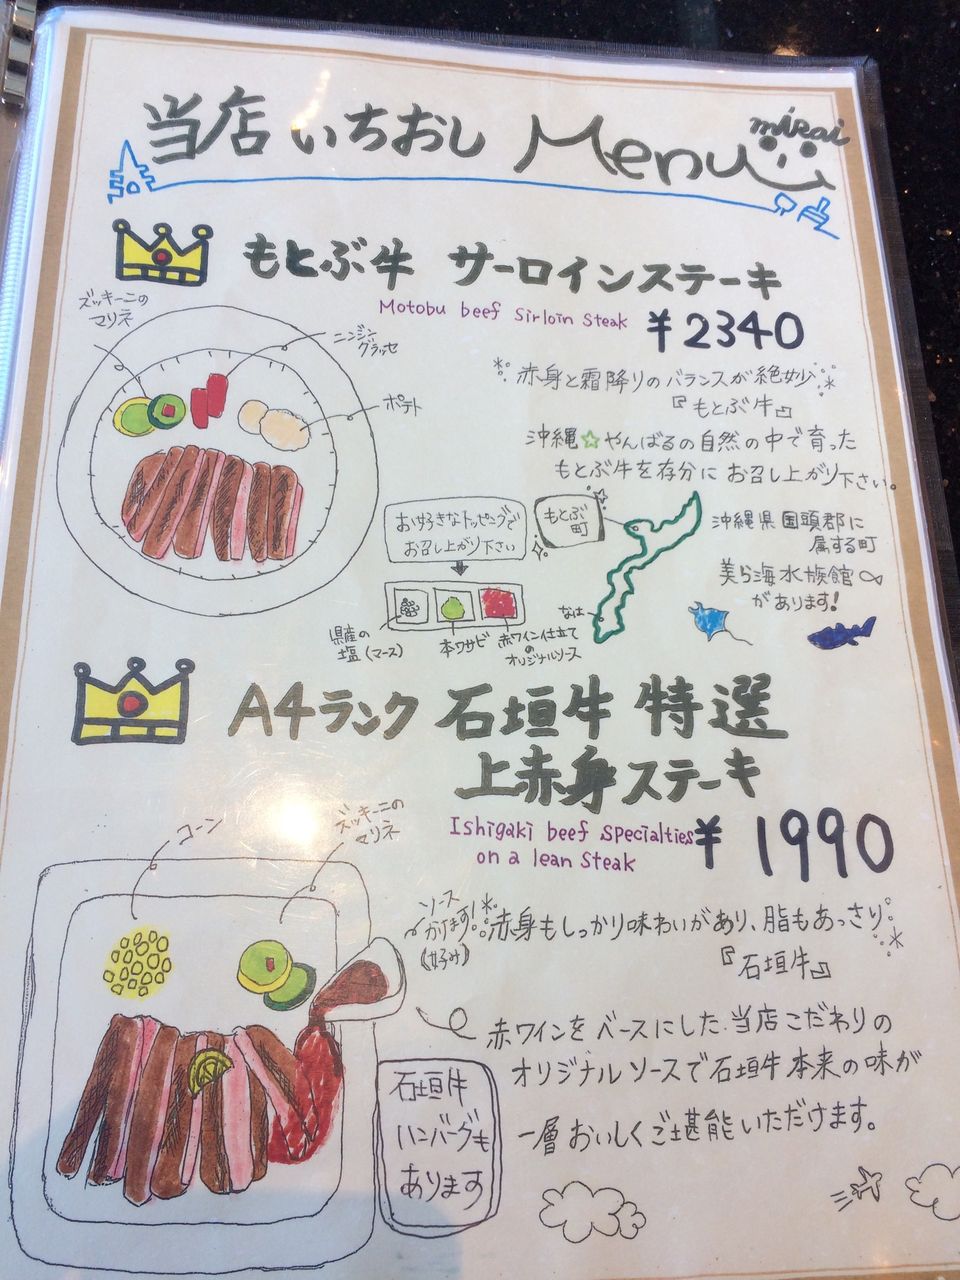 当店いちおし Menu
mirai
もとぶ牛 サーロインステーキ
Motobu beef sirloin steak ¥2340
ズッキーニの
マリネ
ニンジン
グラッセ
ポテト
赤身と霜降りのバランスが絶妙
『もとぶ牛』
沖縄☆やんばるの自然の中で育った
もとぶ牛を存分にお召し上がり下さい。
お好きなトッピングで
お召し上がり下さい
もとぶ
町
沖縄県国頭郡に
属する町
美ら海水族館
があります!
なは
県産の
塩(マース)
本ワサビ
赤ワイン仕立て
の
オリジナルソース
A4ランク 石垣牛 特選
上赤身ステーキ
Ishigaki beef specialties
on a lean steak
¥1990
コーン
ズッキーニの
マリネ
ソース
かけます!
(お好み)
赤身もしっかり味わいがあり、脂もあっさり
『石垣牛』
赤ワインをベースにした当店こだわりの
オリジナルソースで石垣牛本来の味が
一層おいしくご堪能いただけます。
石垣牛
ハンバーグも
あります